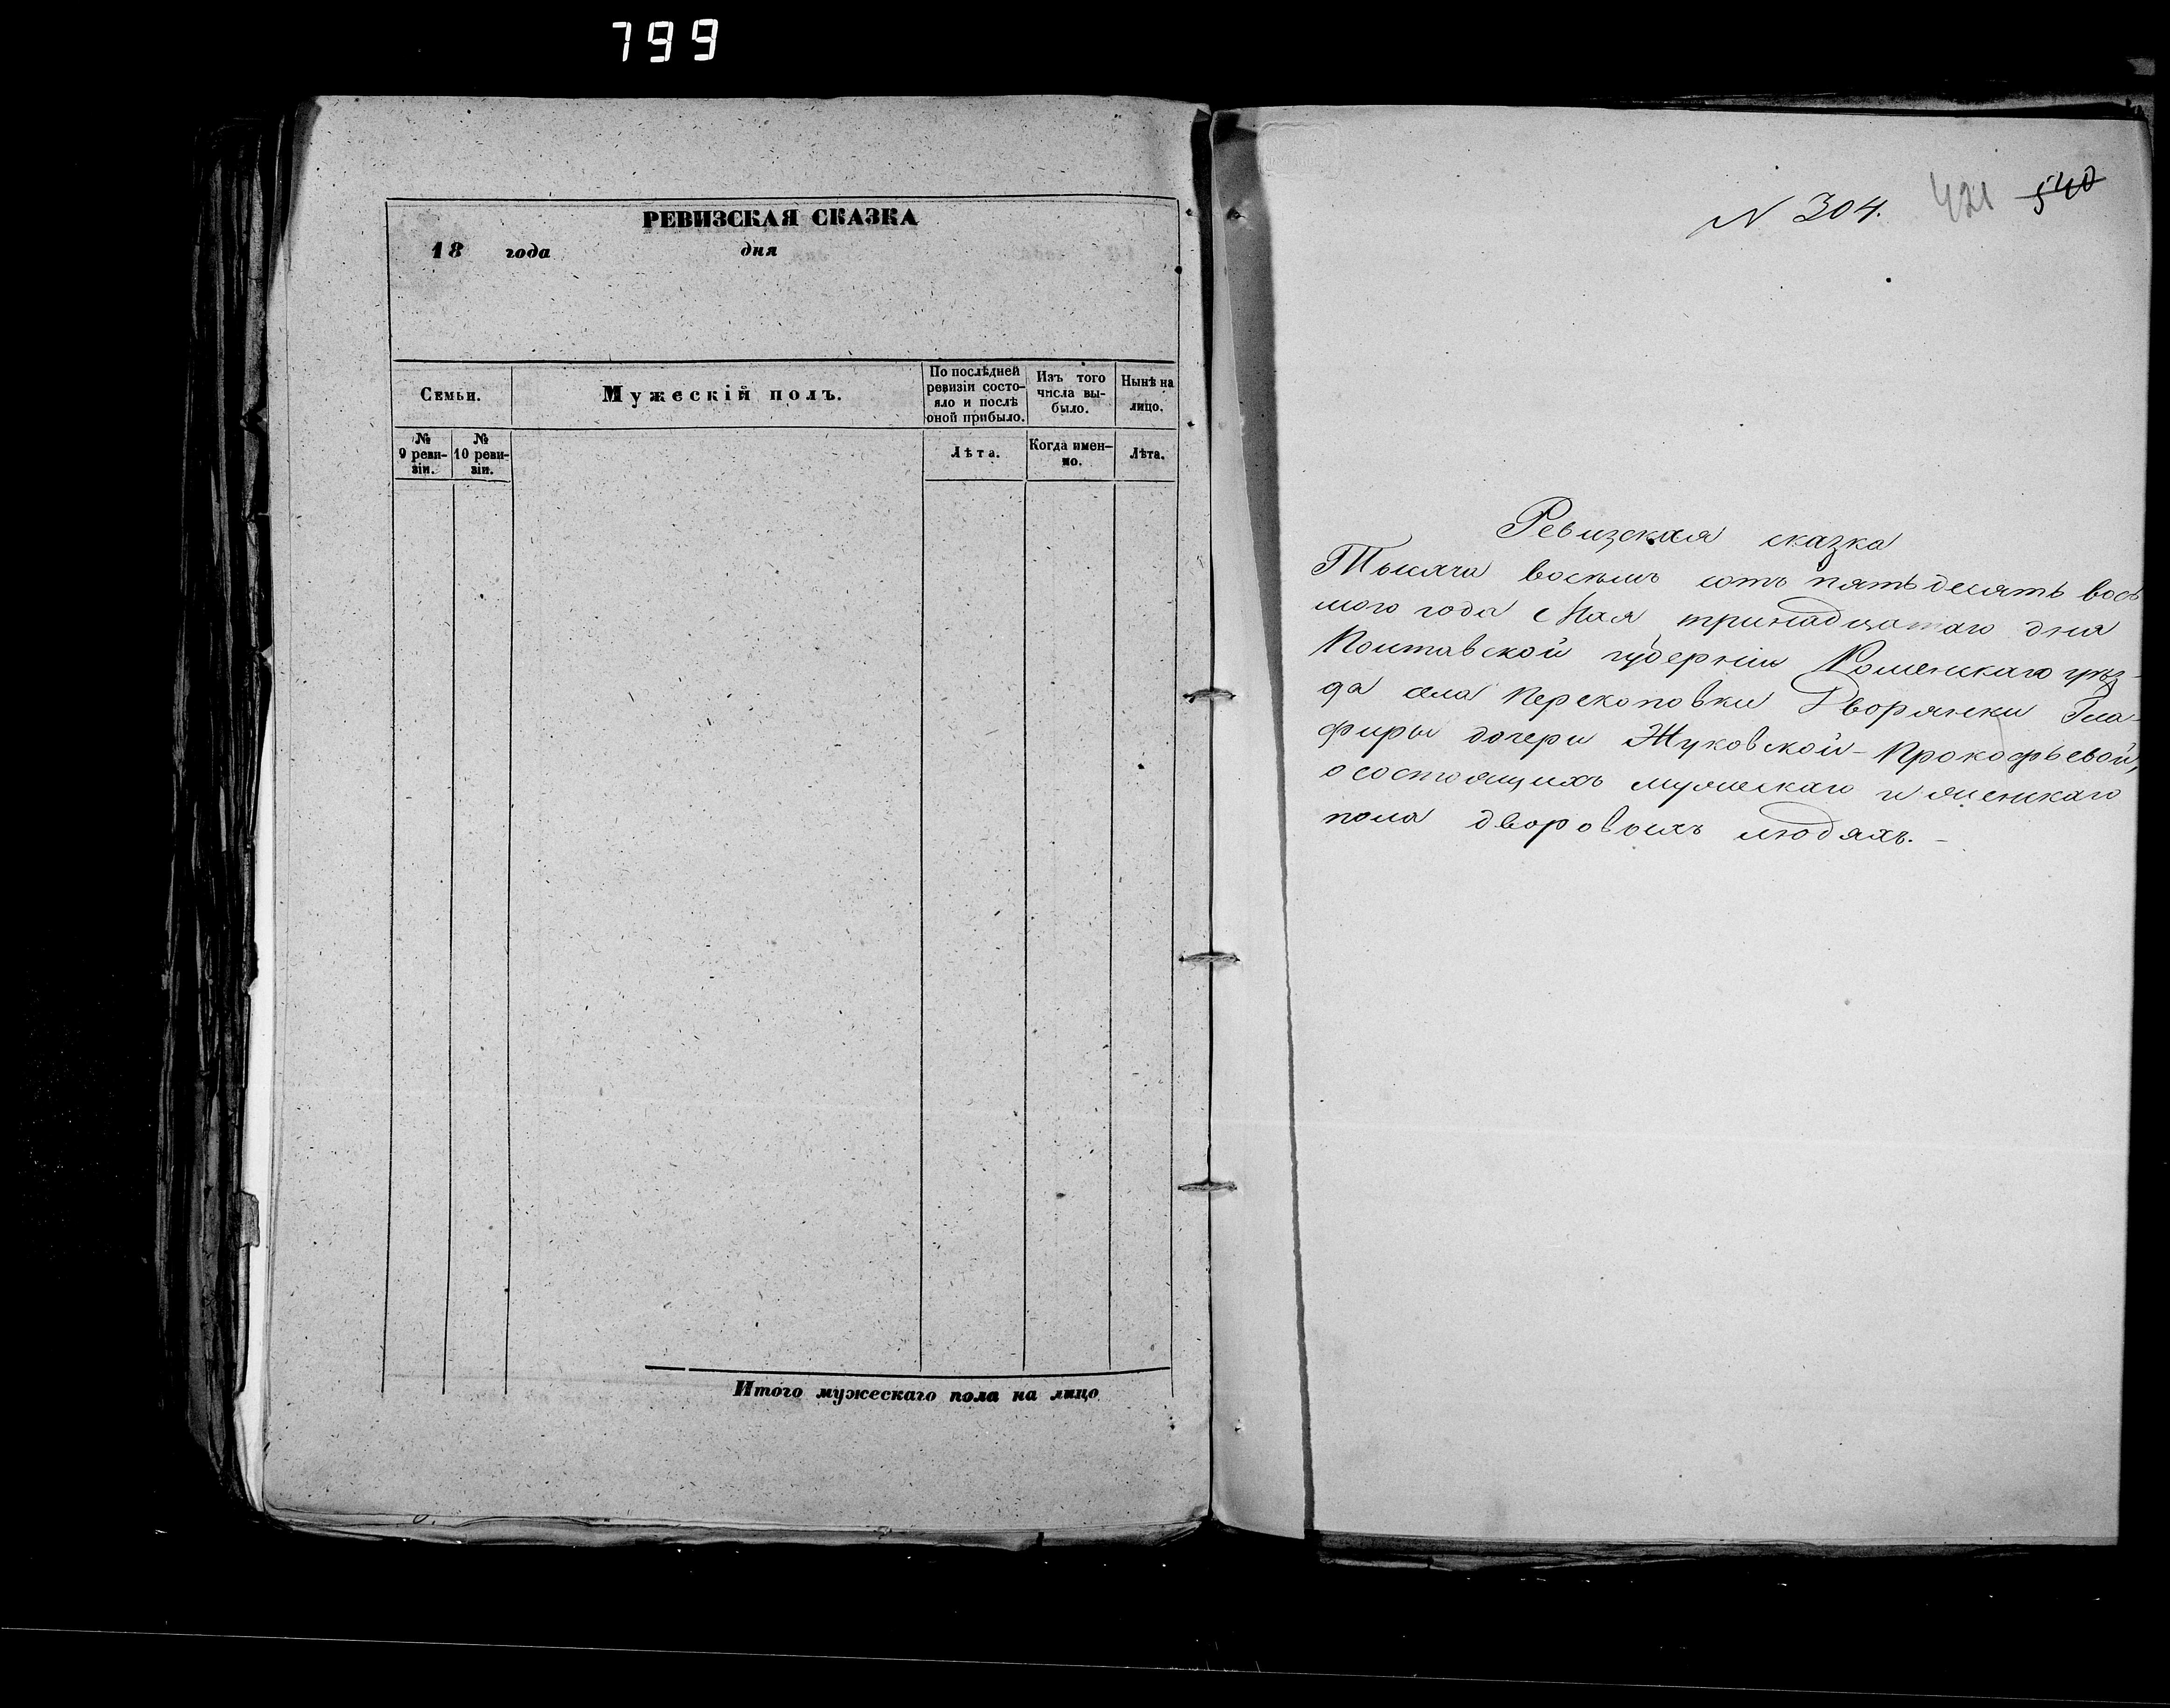 799
РЕВИЗСКАЯ СКАЗКА
18 года дня
Семьи.
Мужескій полъ.
По послѣдней
ревизіи состо-
яло и послѣ
оной прибыло.
Изъ того
числа вы-
было.
Нынѣ на
лицо.
№
9 реви-
зіи.
№
10 реви-
зіи.
Лѣта.
Когда имен-
но.
Лѣта.
Итого мужескаго пола на лицо
N 304. 421 540
Ревизская сказка
Тысяча восемь сотъ пятьдесятъ вось
мого года Мая тринадцатаго дня
Полтавской губерніи Роменскаго уѣз-
да села Перекоповки Дворянки Гла-
фиры дочери Жуковской-Прокофьевой,
о состоящихъ мужескаго и женскаго
пола дворовыхъ людяхъ.-